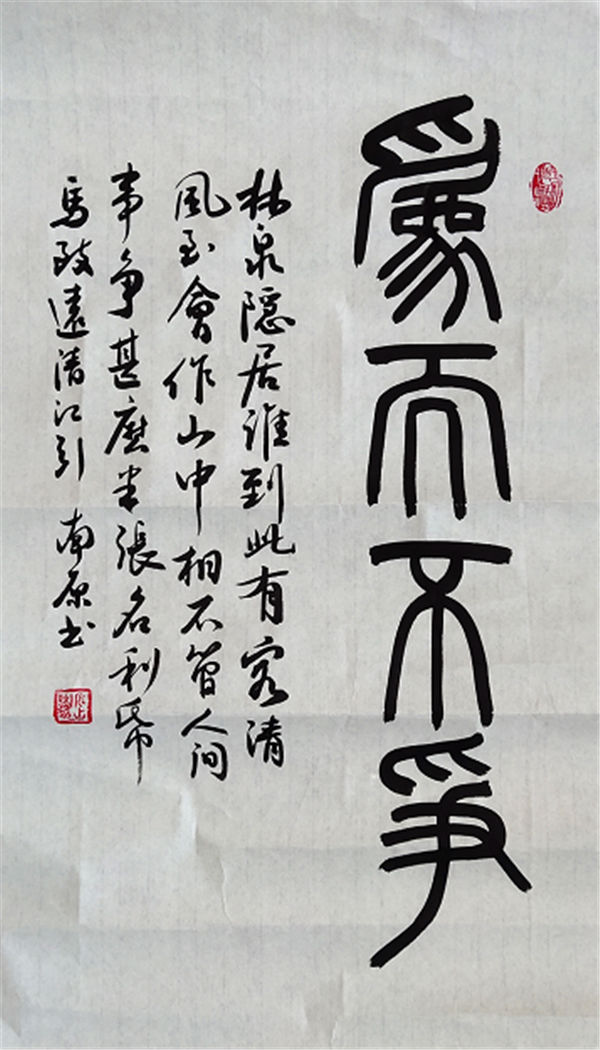 為而不爭
林泉隱居誰到此有客清
風至會作山中相不管人间
事争甚麽半張名利帋
馬致遠清江引 南原书